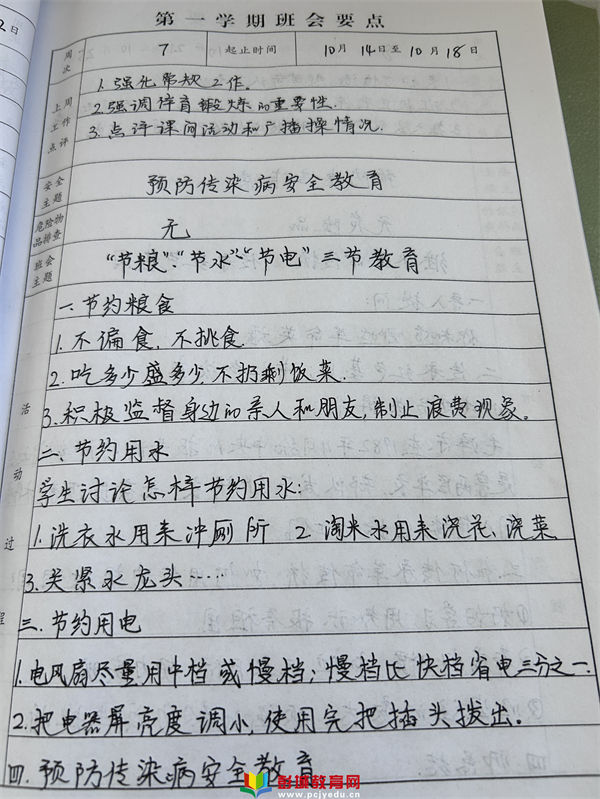 第一学期班会要点
周次 7 起止时间 10月14日至10月18日
上周工作点评
1.强化常规工作。
2.强调体育锻炼的重要性.
3.点评课间活动和广播操情况.
安全主题 预防传染病安全教育
危险物品排查 无
班会主题 “节粮”、“节水”、“节电”三节教育
活动过程
一.节约粮食
1.不偏食,不挑食.
2.吃多少盛多少,不扔剩饭菜.
3.积极监督身边的亲人和朋友,制止浪费现象。
二、节约用水
学生讨论怎样节约用水:
1.洗衣水用来冲厕所 2.淘米水用来浇花、浇菜
3.关紧水龙头……
三.节约用电
1.电风扇尽量用中档或慢档;慢档比快档省电三分之一.
2.把电器屏亮度调小,使用完把插头拔出。
四.预防传染病安全教育
彭城教育网
www.pcjyedu.cn